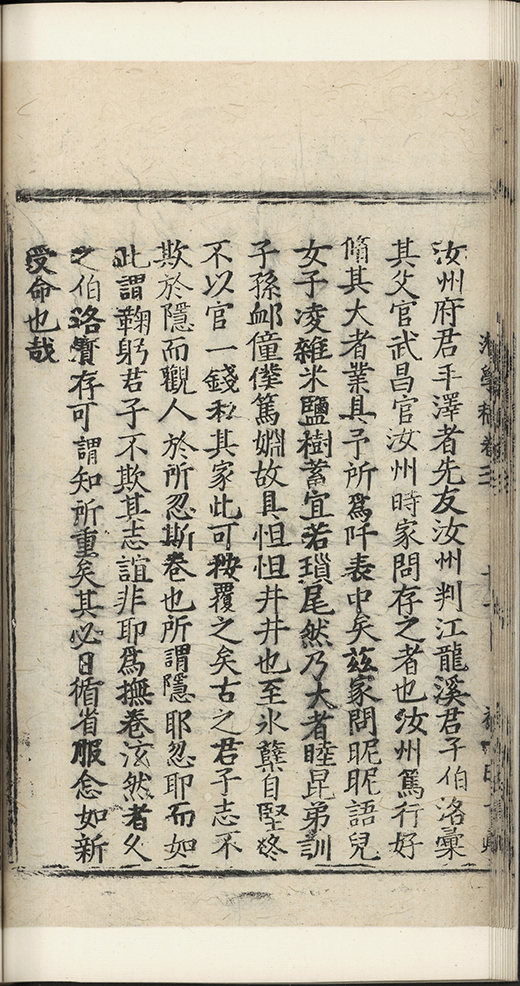 汝州府君手澤者先友汝州判江龍溪君子伯洛彙
其父官武昌官汝州時家問存之者也汝州篤行好
脩其大者業具予所爲阡表中矣茲家問昵昵語兒
女子凌雜米鹽樹蓄宜若瑣尾然乃大者睦昆弟訓
子孫卹僮僕篤婣故具怛怛井井也至氷櫱自堅終
不以官一錢私其家此可按覆之矣古之君子志不
欺於隱而觀人於所忍斯卷也所謂隱耶忍耶而如
此謂鞠躬君子不欺其志誼非耶爲撫卷泫然者久
之伯洛寳存可謂知所重矣其必日循省服念如新
受命也哉